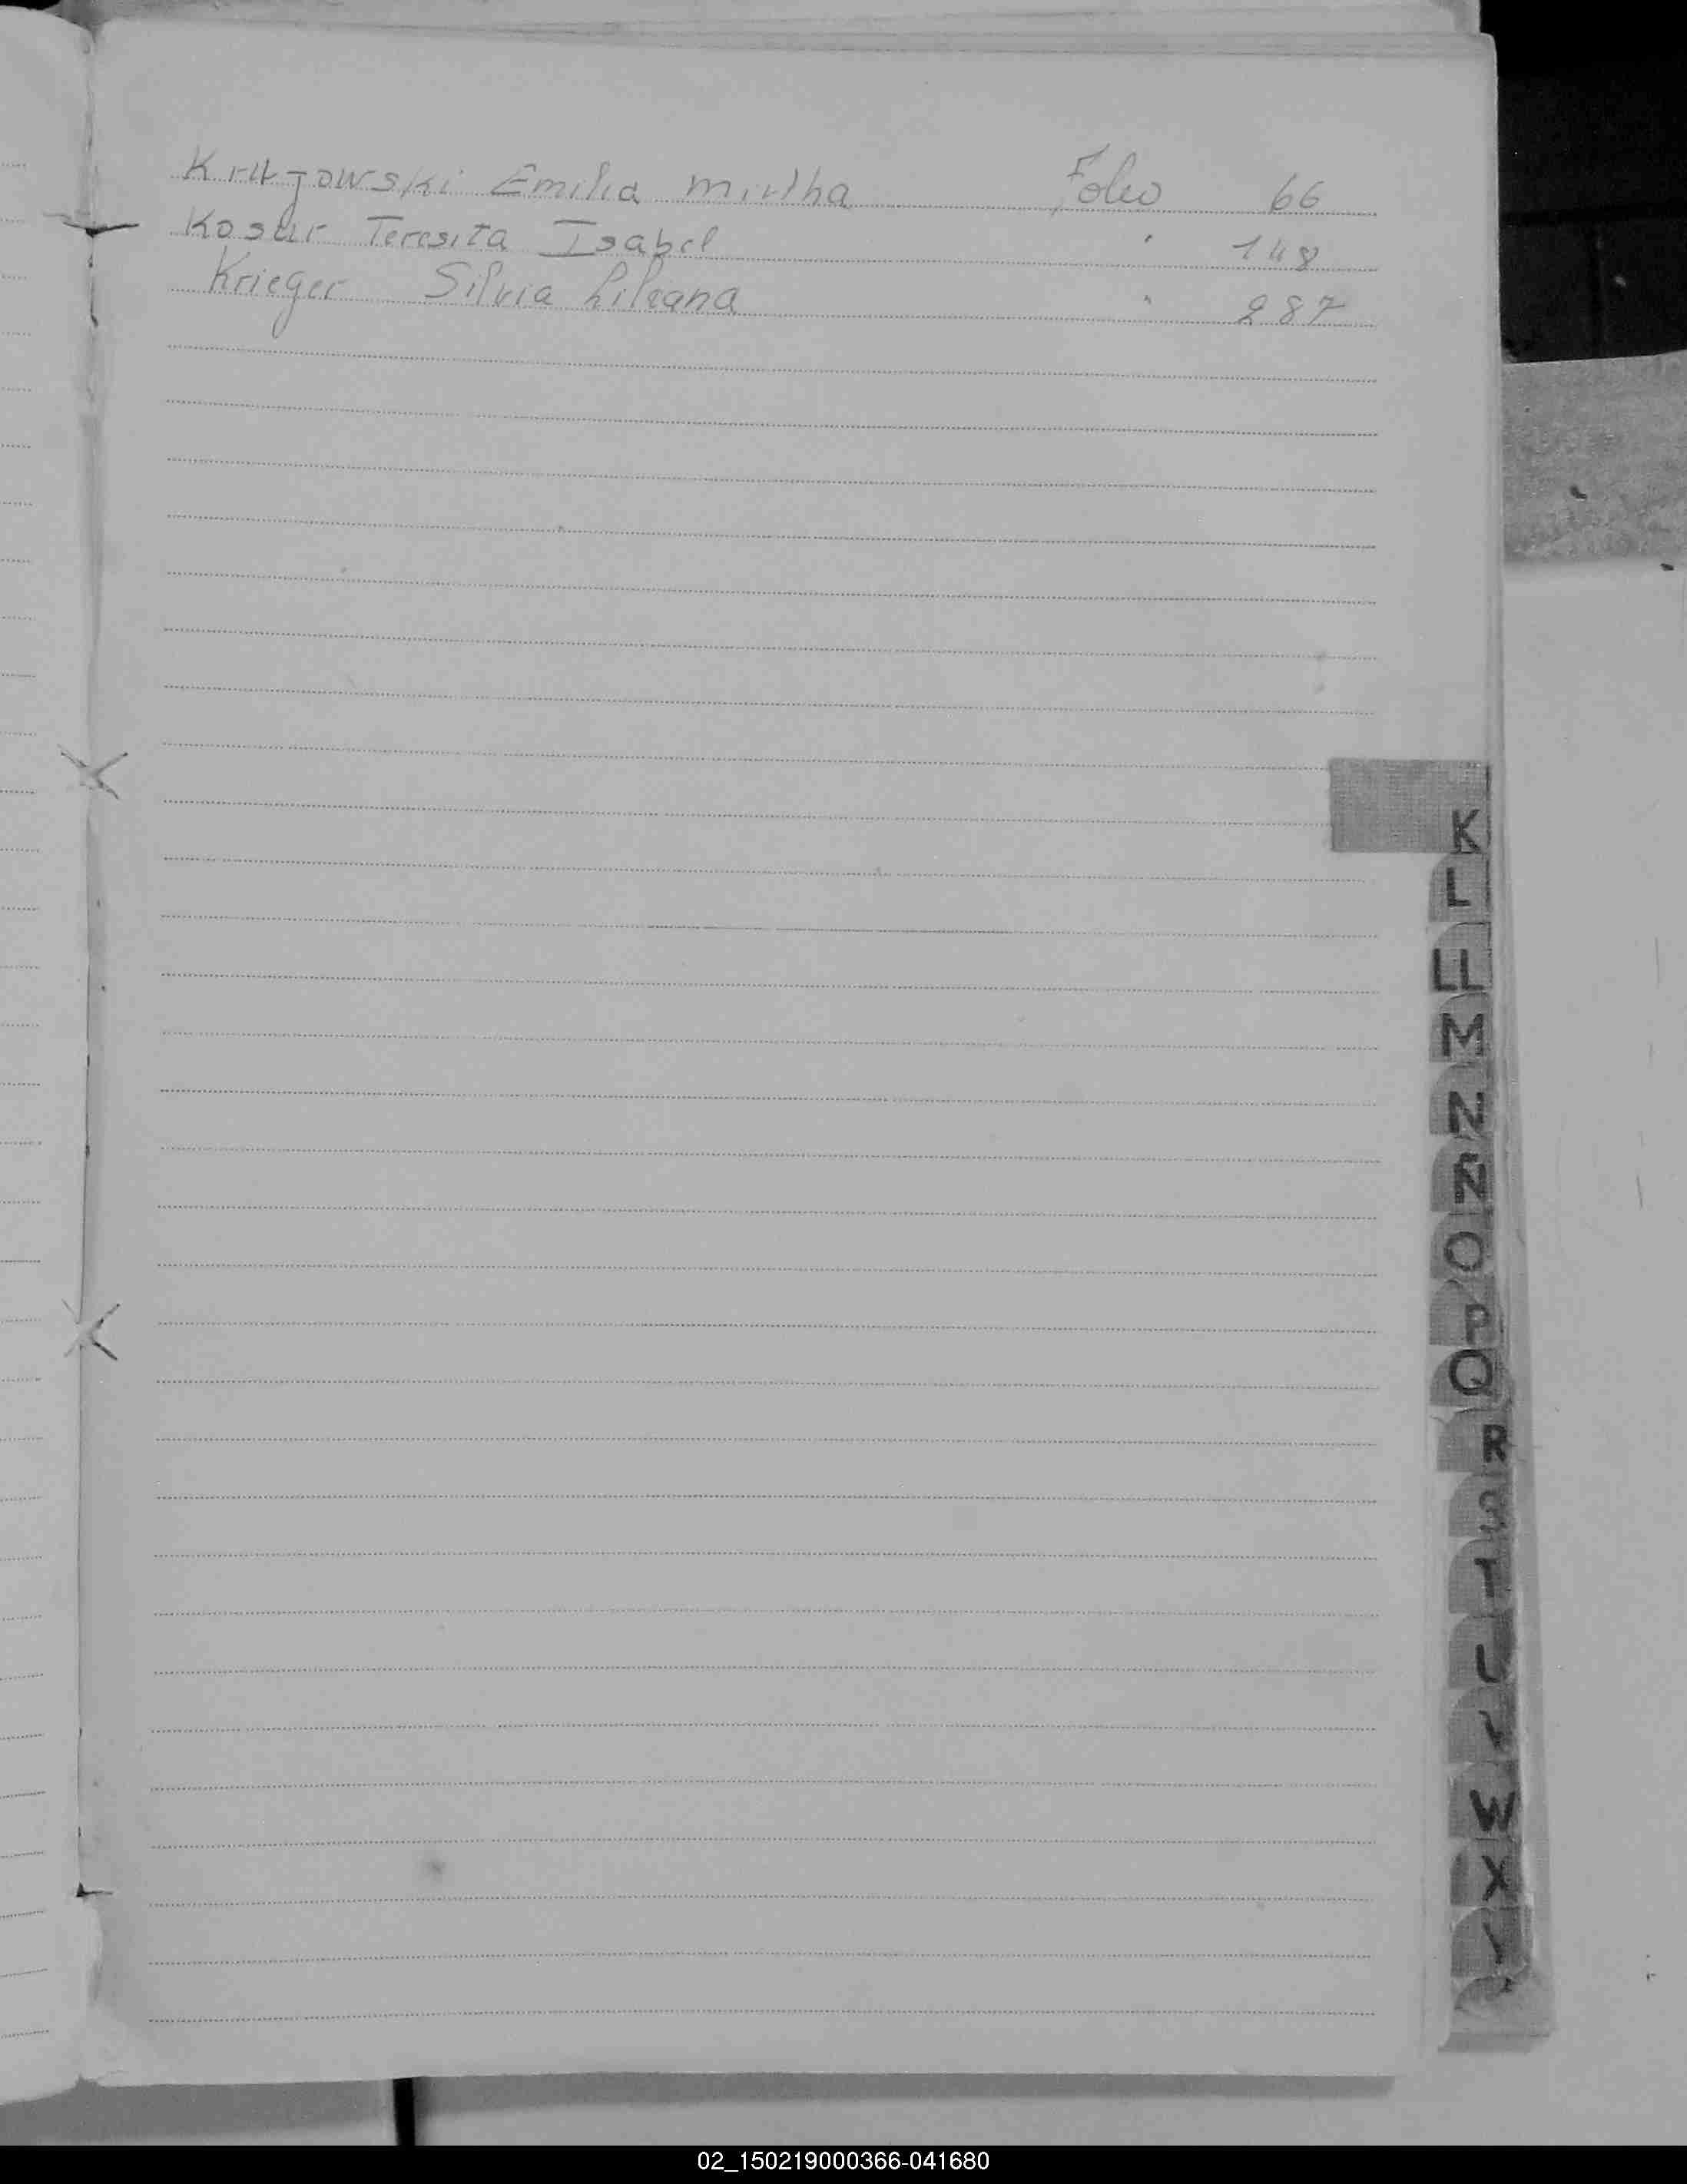 Emilia Mirtha Folio 66
Kosur Teresita Isabel " 148
Krieger Silvia Liliana " 287
K
L
LL
M
N
Ñ
O
P
Q
R
S
T
U
V
W
X
Y
02_150219000366-041680